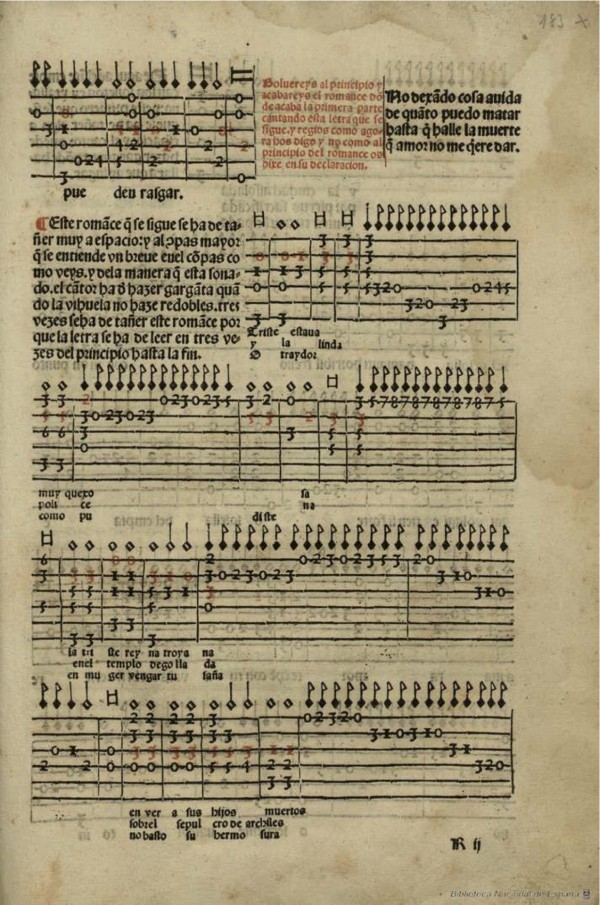 183
Boluereys al principio y
acabareys el romance dõ
de acaba la primera parte
cantando esta letra que se
sigue. y regios como ago
ra hos digo y no como al
principio del romance os
dixe en su declaracion.
No dexãdo cosa auida
de quãto puedo matar
hasta q̃ halle la muerte
q̃ amor no me q̃ere dar.
pue den rasgar.
¶Este romãce q̃ se sigue se ha de ta-
ñer muy a espacio: y al cõpas mayor
q̃ se entiende vn breue en el cõpas co
mo veys. y dela manera q̃ esta sona-
do. el cãtor ha d̃ hazer gargãta quã
do la vihuela no haze redobles. tres
vezes se ha de tañer este romãce por
que la letra se ha de leer en tres ve-
zes del principio hasta la fin.
Triste estaua
y la linda
O traydor
muy quexo sa
poli ce na
como pu diste
la tri ste rey na troya na
enel templo dego lla da
en mu ger vengar tu saña
en ver a sus hijos muertos
sobrel sepul cro de archiles
no basto su hermo sura
R ij
Biblioteca Nacional de España